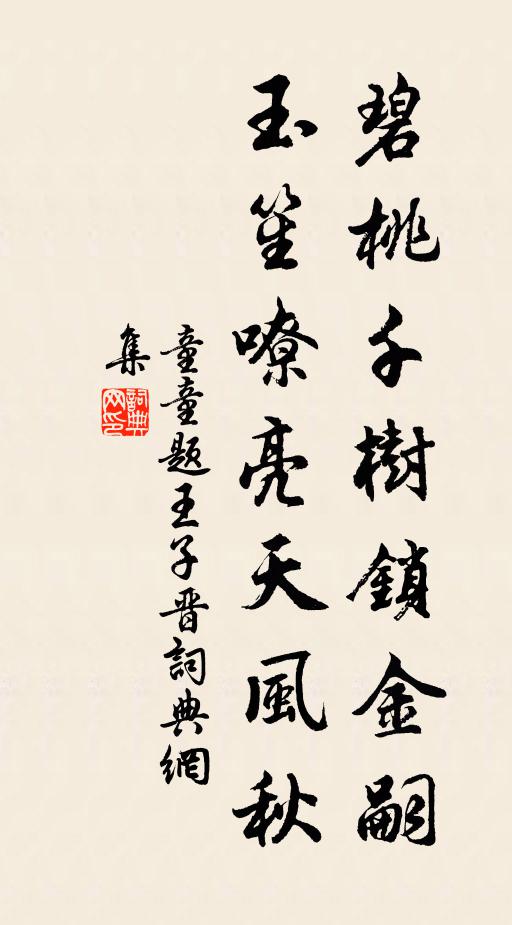 碧桃千樹鎖金嗣
玉笙嘹亮天風秋
童童題王子晋詞典網
集
詞典網印